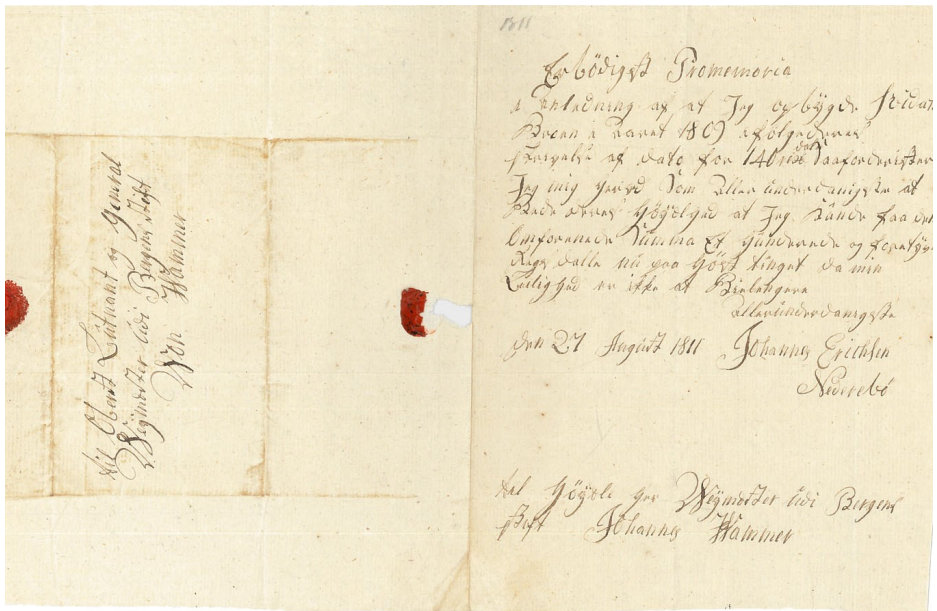 Til Oberst Lutnant og General
Weymæster udi Bergens Stift
Von Hammer
1811
Erbödigst Promemoria
i Anledning af at Jeg opbÿgde
Broen i Aaret 1809 efölge deres
skrivelse af dato for 140 rixdal
Jeg mig herved Som aller underdanigste at
Bede deres Höÿdlhed at Jeg Kunde faa den
Omforenede Summa Et Hunderede og foretÿve
Rigs dalle nu paa Höst tinget da min
Leilighed er ikke at Bie lengere
allerunderdanigste
den 27 August 1811 Johannes Erichsen
Nederebö
til Höÿdle Her Weymæster udi Bergens
Stift Johannes Hammer